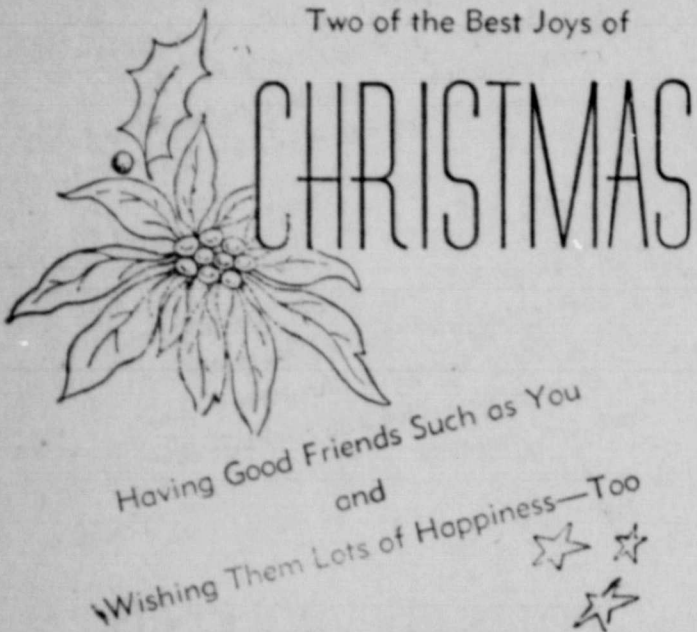 Two of the Best Joys of
CHRISTMAS
Having Good Friends Such as You
and
Wishing Them Lots of Happiness—Too